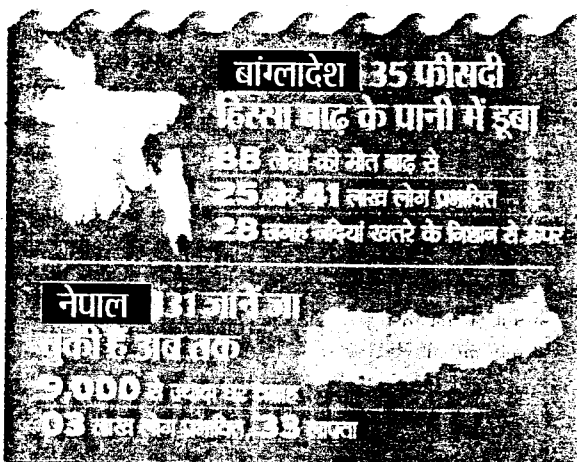 बांग्लादेश 35 फीसदी
हिस्सा बाढ़ के पानी में डूबा
88 लोगों की मौत बाढ़ से
25 और 41 लाख लोग प्रभावित
28 जगह नदियां खतरे के निशान से ऊपर
नेपाल 131 जानें जा
चुकी हैं अब तक
9,000 से ज्यादा घर
03 लाख लोग प्रभावित, 33 लापता